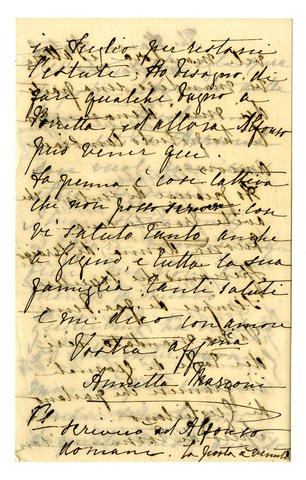 in Luglio per restarvi
l'estate; Ho bisogno di
fare qualche bagno a
Porretta, ed allora Alfonso
può venir qui.
La penna è così cattiva
che non posso scrivere; così
vi saluto tanto, anche
e tutta la sua
famiglia. Tanti saluti
e mi dico con amore
Vostra
Annetta Marconi
PS
scrivero ad Alfonso
domani. La posta è venuta